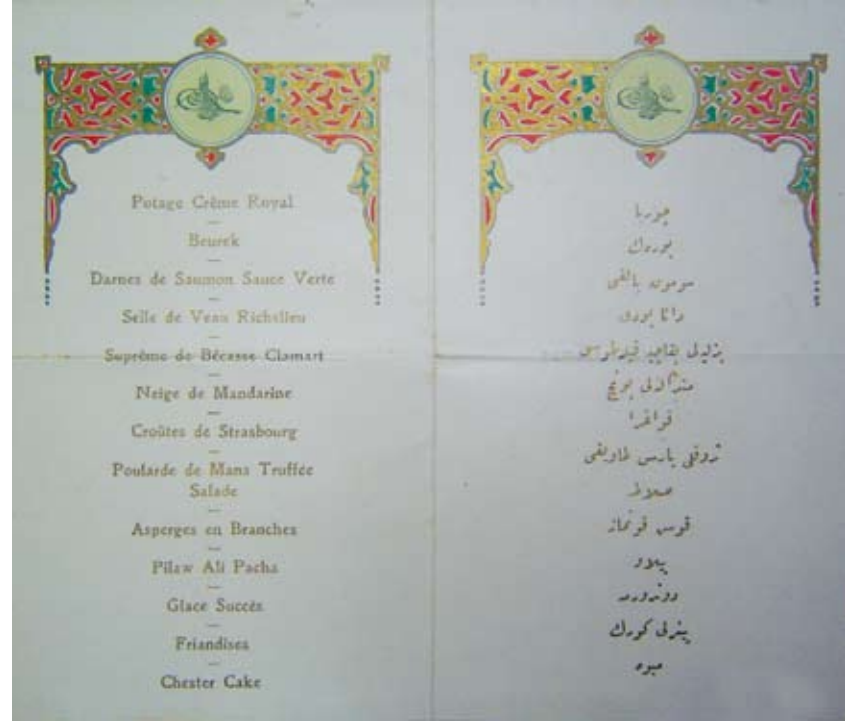 Potage Crème Royal
Beurek
Darnes de Saumon Sauce Verte
Selle de Veau Richelieu
Suprême de Bécasse Clamart
Neige de Mandarine
Croûtes de Strasbourg
Poularde de Mans Truffée
Salade
Asperges en Branches
Pilaw Ali Pacha
Glace Succès
Friandises
Chester Cake
چوربا
بورك
سومون بالغی
دانا بودی
بزلیلی
پونچ
فواغرا
پارس طاوغی
صلاطه
قوش قونماز
پیلاو
دوندورمه
پینرلی
میوه